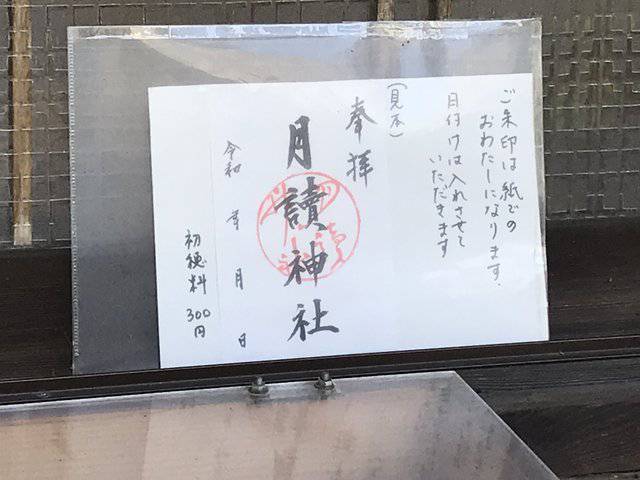 ご朱印は紙での
おわたしになります.
日付けは入れさせて
いただきます
(見本)
奉拝
月讀神社
令和 年 月 日
初穂料 300円